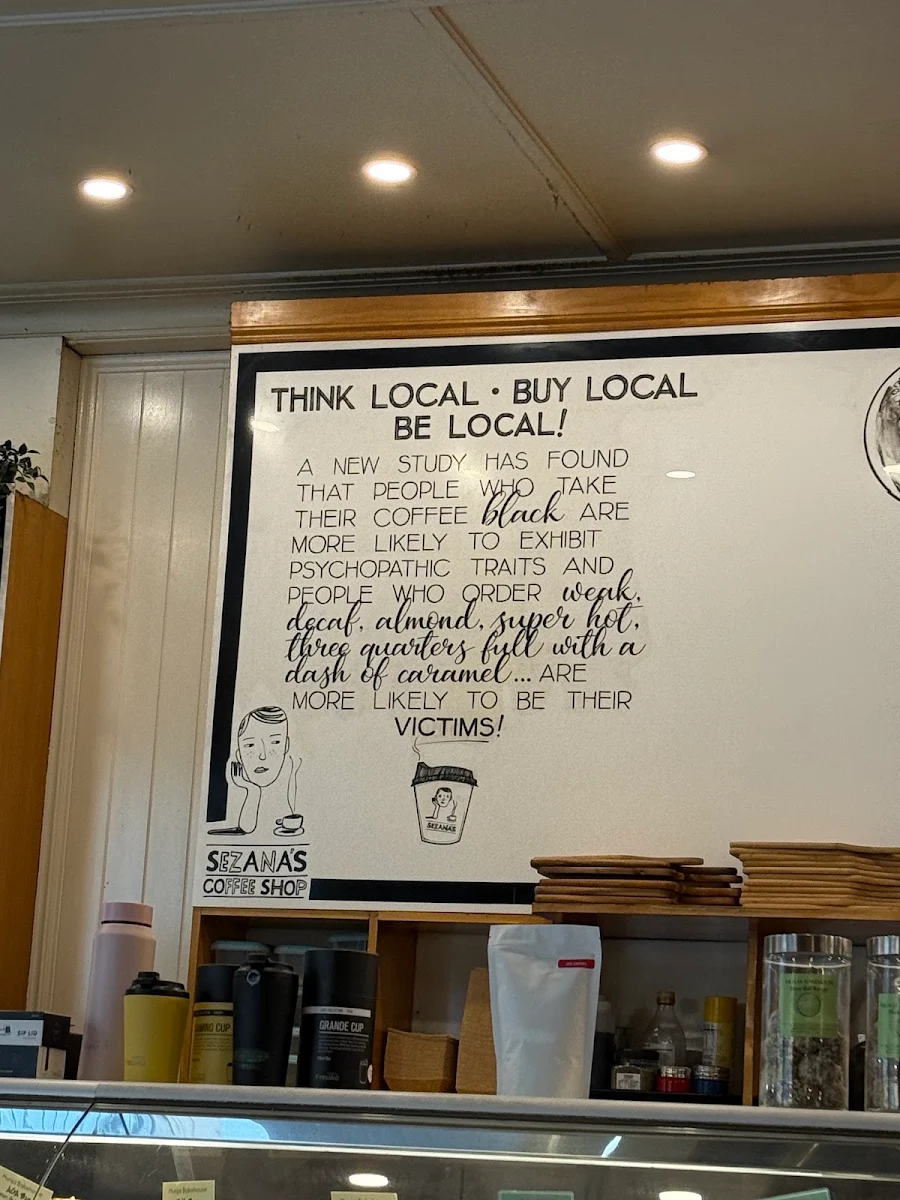 THINK LOCAL • BUY LOCAL
BE LOCAL!
A NEW STUDY HAS FOUND
THAT PEOPLE WHO TAKE
THEIR COFFEE black ARE
MORE LIKELY TO EXHIBIT
PSYCHOPATHIC TRAITS AND
PEOPLE WHO ORDER weak,
decaf, almond, super hot,
three quarters full with a
dash of caramel... ARE
MORE LIKELY TO BE THEIR
VICTIMS!
SEZANA'S
SEZANA'S
COFFEE SHOP
SIP LID
CUP
GRANDE CUP